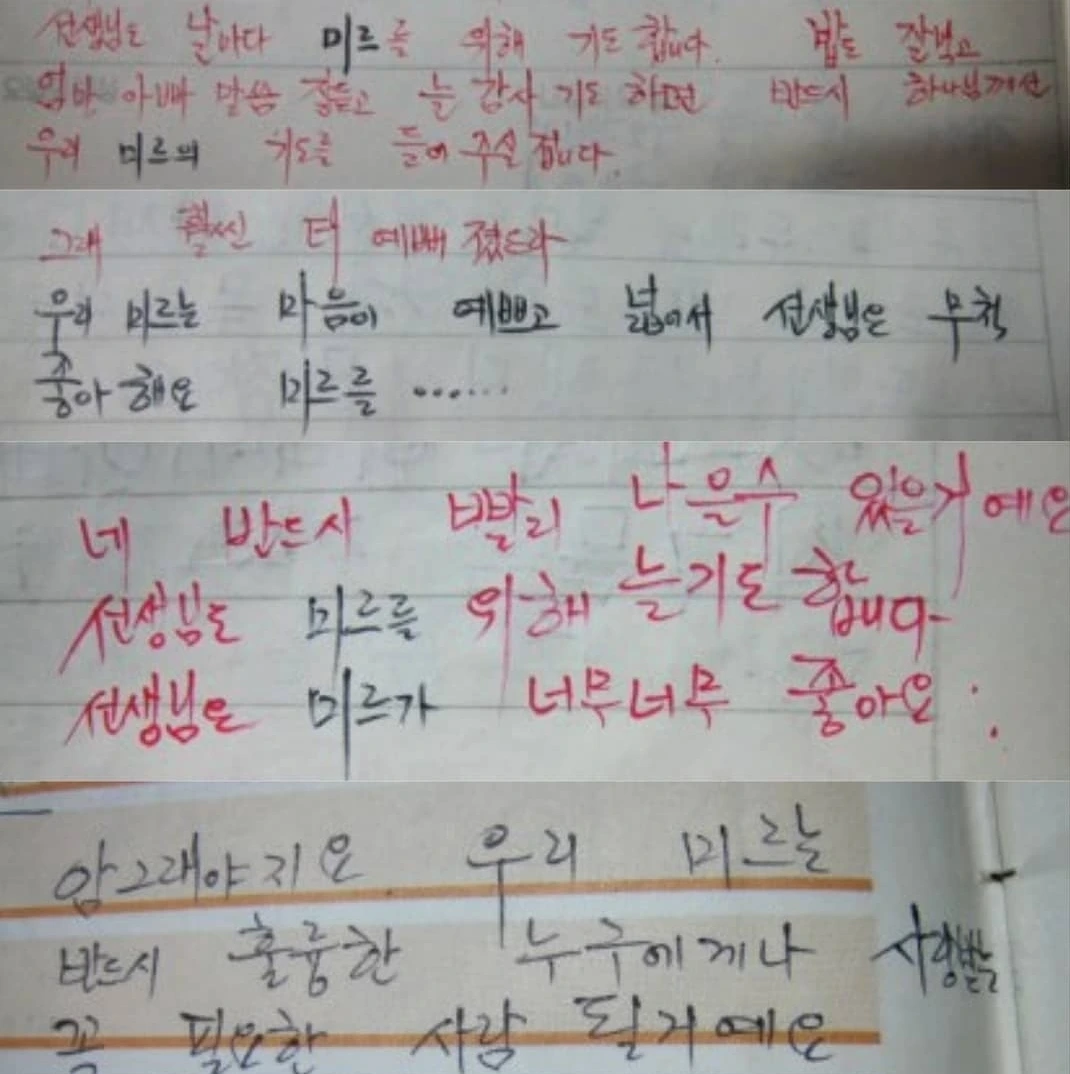 선생님도 날마다 미르를 위해 기도 합니다. 밥도 잘먹고
엄마 아빠 말씀 잘듣고 늘 감사 기도 하면 반드시 하나님께선
우리 미르의 기도를 들어 주실 겁니다.
그래 훨씬 더 예뻐 졌드라
우리 미르는 마음이 예쁘고 넓어서 선생님은 무척
좋아해요 미르를 ......
네 반드시 빨리 나을수 있을거예요
선생님도 미르를 위해 늘기도 합니다
선생님은 미르가 너무너무 좋아요.
암그래야지요 우리 미르는
반드시 훌륭한 누구에게나 사랑받는
꼭 필요한 사람 될거예요